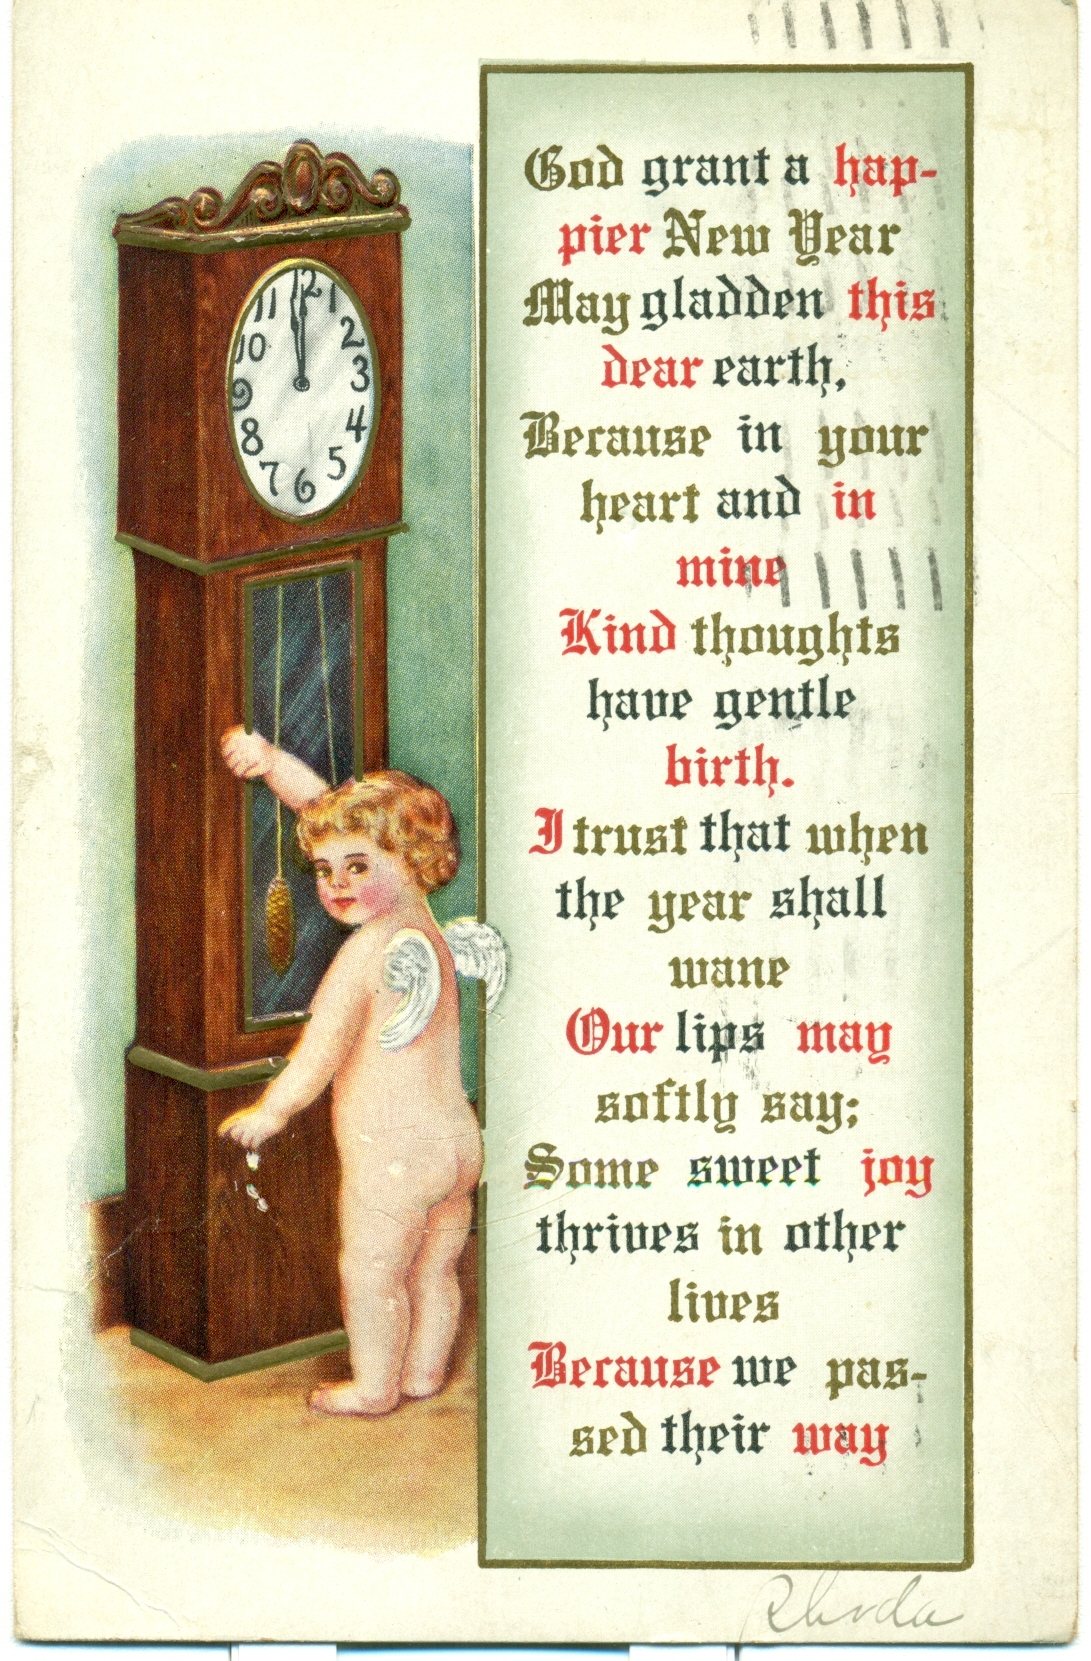 God grant a hap-
pier New Year
May gladden this
dear earth,
Because in your
heart and in
mine
Kind thoughts
have gentle
birth.
I trust that when
the year shall
wane
Our lips may
softly say;
Some sweet joy
thrives in other
lives
Because we pas-
sed their way
Rhoda
11 12 1
10 2
9 3
8 4
7 6 5